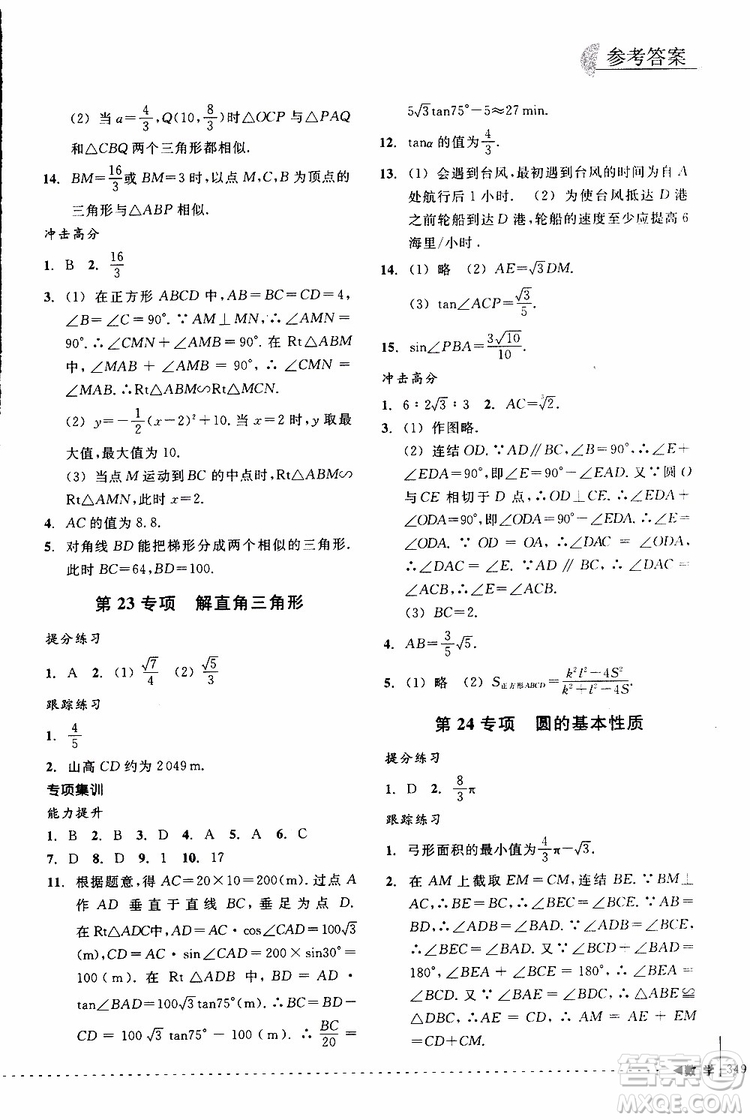 参考答案
(2) 当 a=4/3,Q(10,8/3)时△OCP 与△PAQ
和△CBQ 两个三角形都相似.
14. BM=16/3或 BM=3 时,以点 M,C,B 为顶点的
三角形与△ABP 相似.
冲击高分
1. B 2. 16/3
3. (1) 在正方形 ABCD 中,AB=BC=CD=4,
∠B=∠C=90°. ∵AM⊥MN,∴∠AMN=
90°. ∴∠CMN+∠AMB=90°. 在 Rt△ABM
中,∠MAB+∠AMB=90°,∴∠CMN=
∠MAB. ∴Rt△ABM∽Rt△MCN.
(2) y=-1/2(x-2)²+10. 当 x=2 时,y 取最
大值,最大值为 10.
(3) 当点 M 运动到 BC 的中点时,Rt△ABM∽
Rt△AMN,此时 x=2.
4. AC 的值为 8.8.
5. 对角线 BD 能把梯形分成两个相似的三角形.
此时 BC=64,BD=100.
第 23 专项 解直角三角形
提分练习
1. A 2. (1) √7/4 (2) √5/3
跟踪练习
1. 4/5
2. 山高 CD 约为 2 049 m.
专项集训
能力提升
1. B 2. B 3. D 4. A 5. B 6. C
7. D 8. D 9. 1 10. 17
11. 根据题意,得 AC=20×10=200(m). 过点 A
作 AD 垂直于直线 BC,垂足为点 D.
在 Rt△ADC 中,AD=AC·cos∠CAD=100√3
(m),CD=AC·sin∠CAD=200sin30°=
100(m). 在 Rt △ADB 中,BD=AD·
tan∠BAD=100√3tan75°(m). ∴BC=BD-
CD=100√3tan75°-100(m). ∴t=BC/20=
5√3tan75°-5≈27 min.
12. tanα 的值为4/3.
13. (1) 会遇到台风,最初遇到台风的时间为自 A
处航行后 1 小时. (2) 为使台风抵达 D 港
之前轮船到达 D 港,轮船的速度至少应提高 6
海里/小时.
14. (1) 略 (2) AE=√3DM.
(3) tan∠ACP=√3/5.
15. sin∠PBA=3√10/10.
冲击高分
1. 6∶2√3∶3 2. AC=√2.
3. (1) 作图略.
(2) 连结 OD. ∵AD∥BC,∠B=90°,∴∠E+
∠EDA=90°,即∠E=90°-∠EDA. 又∵圆 O
与 CE 相切于 D 点,∴OD⊥CE. ∴∠EDA+
∠ODA=90°,即∠ODA=90°-∠EDA,∴∠E=
∠ODA. 又∵ OD = OA, ∴∠DAC = ∠ODA,
∴∠DAC = ∠E. ∵ AD∥BE, ∴ ∠DAC =
∠ACB,∴∠ACB=∠E.
(3) BC=2.
4. AB=3/5√5.
5. (1) 略 (2) S正方形ABCD=k²l²-4S²/k²+l²-4S.
第 24 专项 圆的基本性质
提分练习
1. D 2. 8/3π
跟踪练习
1. 弓形面积的最小值为4/3π-√3.
2. 在 AM 上截取 EM=CM,连结 BE. ∵BM⊥
AC,∴BE=BC. ∴∠BEC=∠BCE. ∵AB=
DB, ∴∠ADB = ∠BAD. 又∵∠ADB = ∠BCE,
∴∠BEC = ∠BAD. 又∵∠BCD + ∠BAD =
180°, ∠BEA + ∠BEC = 180°, ∴∠BEA =
∠BCD. 又∵∠BAE = ∠BDC, ∴△ABE≌
△DBC, ∴ AE = CD. ∴ AM = AE + EM =
DC+CM.
数学 349
答案圈
MXQE.COM